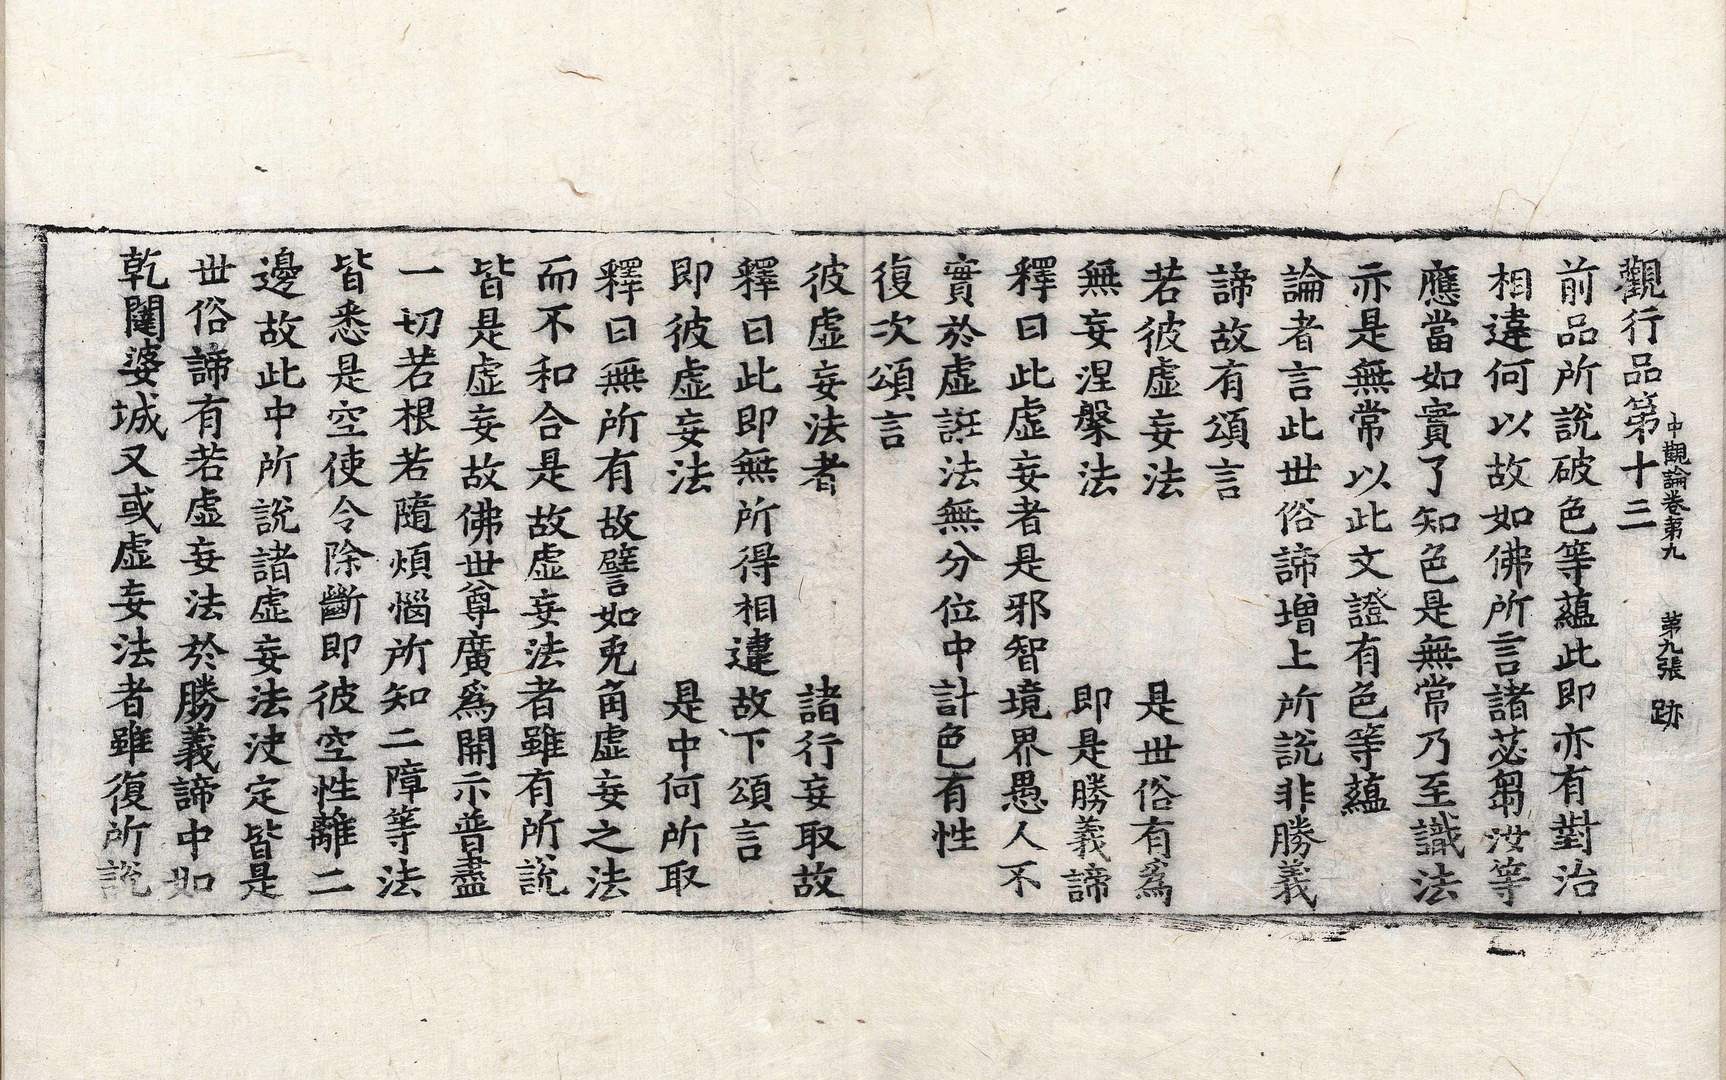 中觀論卷第九　第九張　跡
觀行品第十三
前品所說破色等蘊此即亦有對治
相違何以故如佛所言諸苾芻汝等
應當如實了知色是無常乃至識法
亦是無常以此文證有色等蘊
論者言此世俗諦增上所說非勝義
諦故有頌言
若彼虛妄法　是世俗有爲
無妄涅槃法　即是勝義諦
釋曰此虛妄者是邪智境界愚人不
實於虛誑法無分位中計色有性
復次頌言
彼虛妄法者　諸行妄取故
釋曰此即無所得相違故下頌言
即彼虛妄法　是中何所取
釋曰無所有故譬如兎角虛妄之法
而不和合是故虛妄法者雖有所說
皆是虛妄故佛世尊廣爲開示普盡
一切若根若隨煩惱所知二障等法
皆悉是空使令除斷即彼空性離二
邊故此中所說諸虛妄法决定皆是
世俗諦有若虛妄法於勝義諦中如
乾闥婆城又或虛妄法者雖復所說